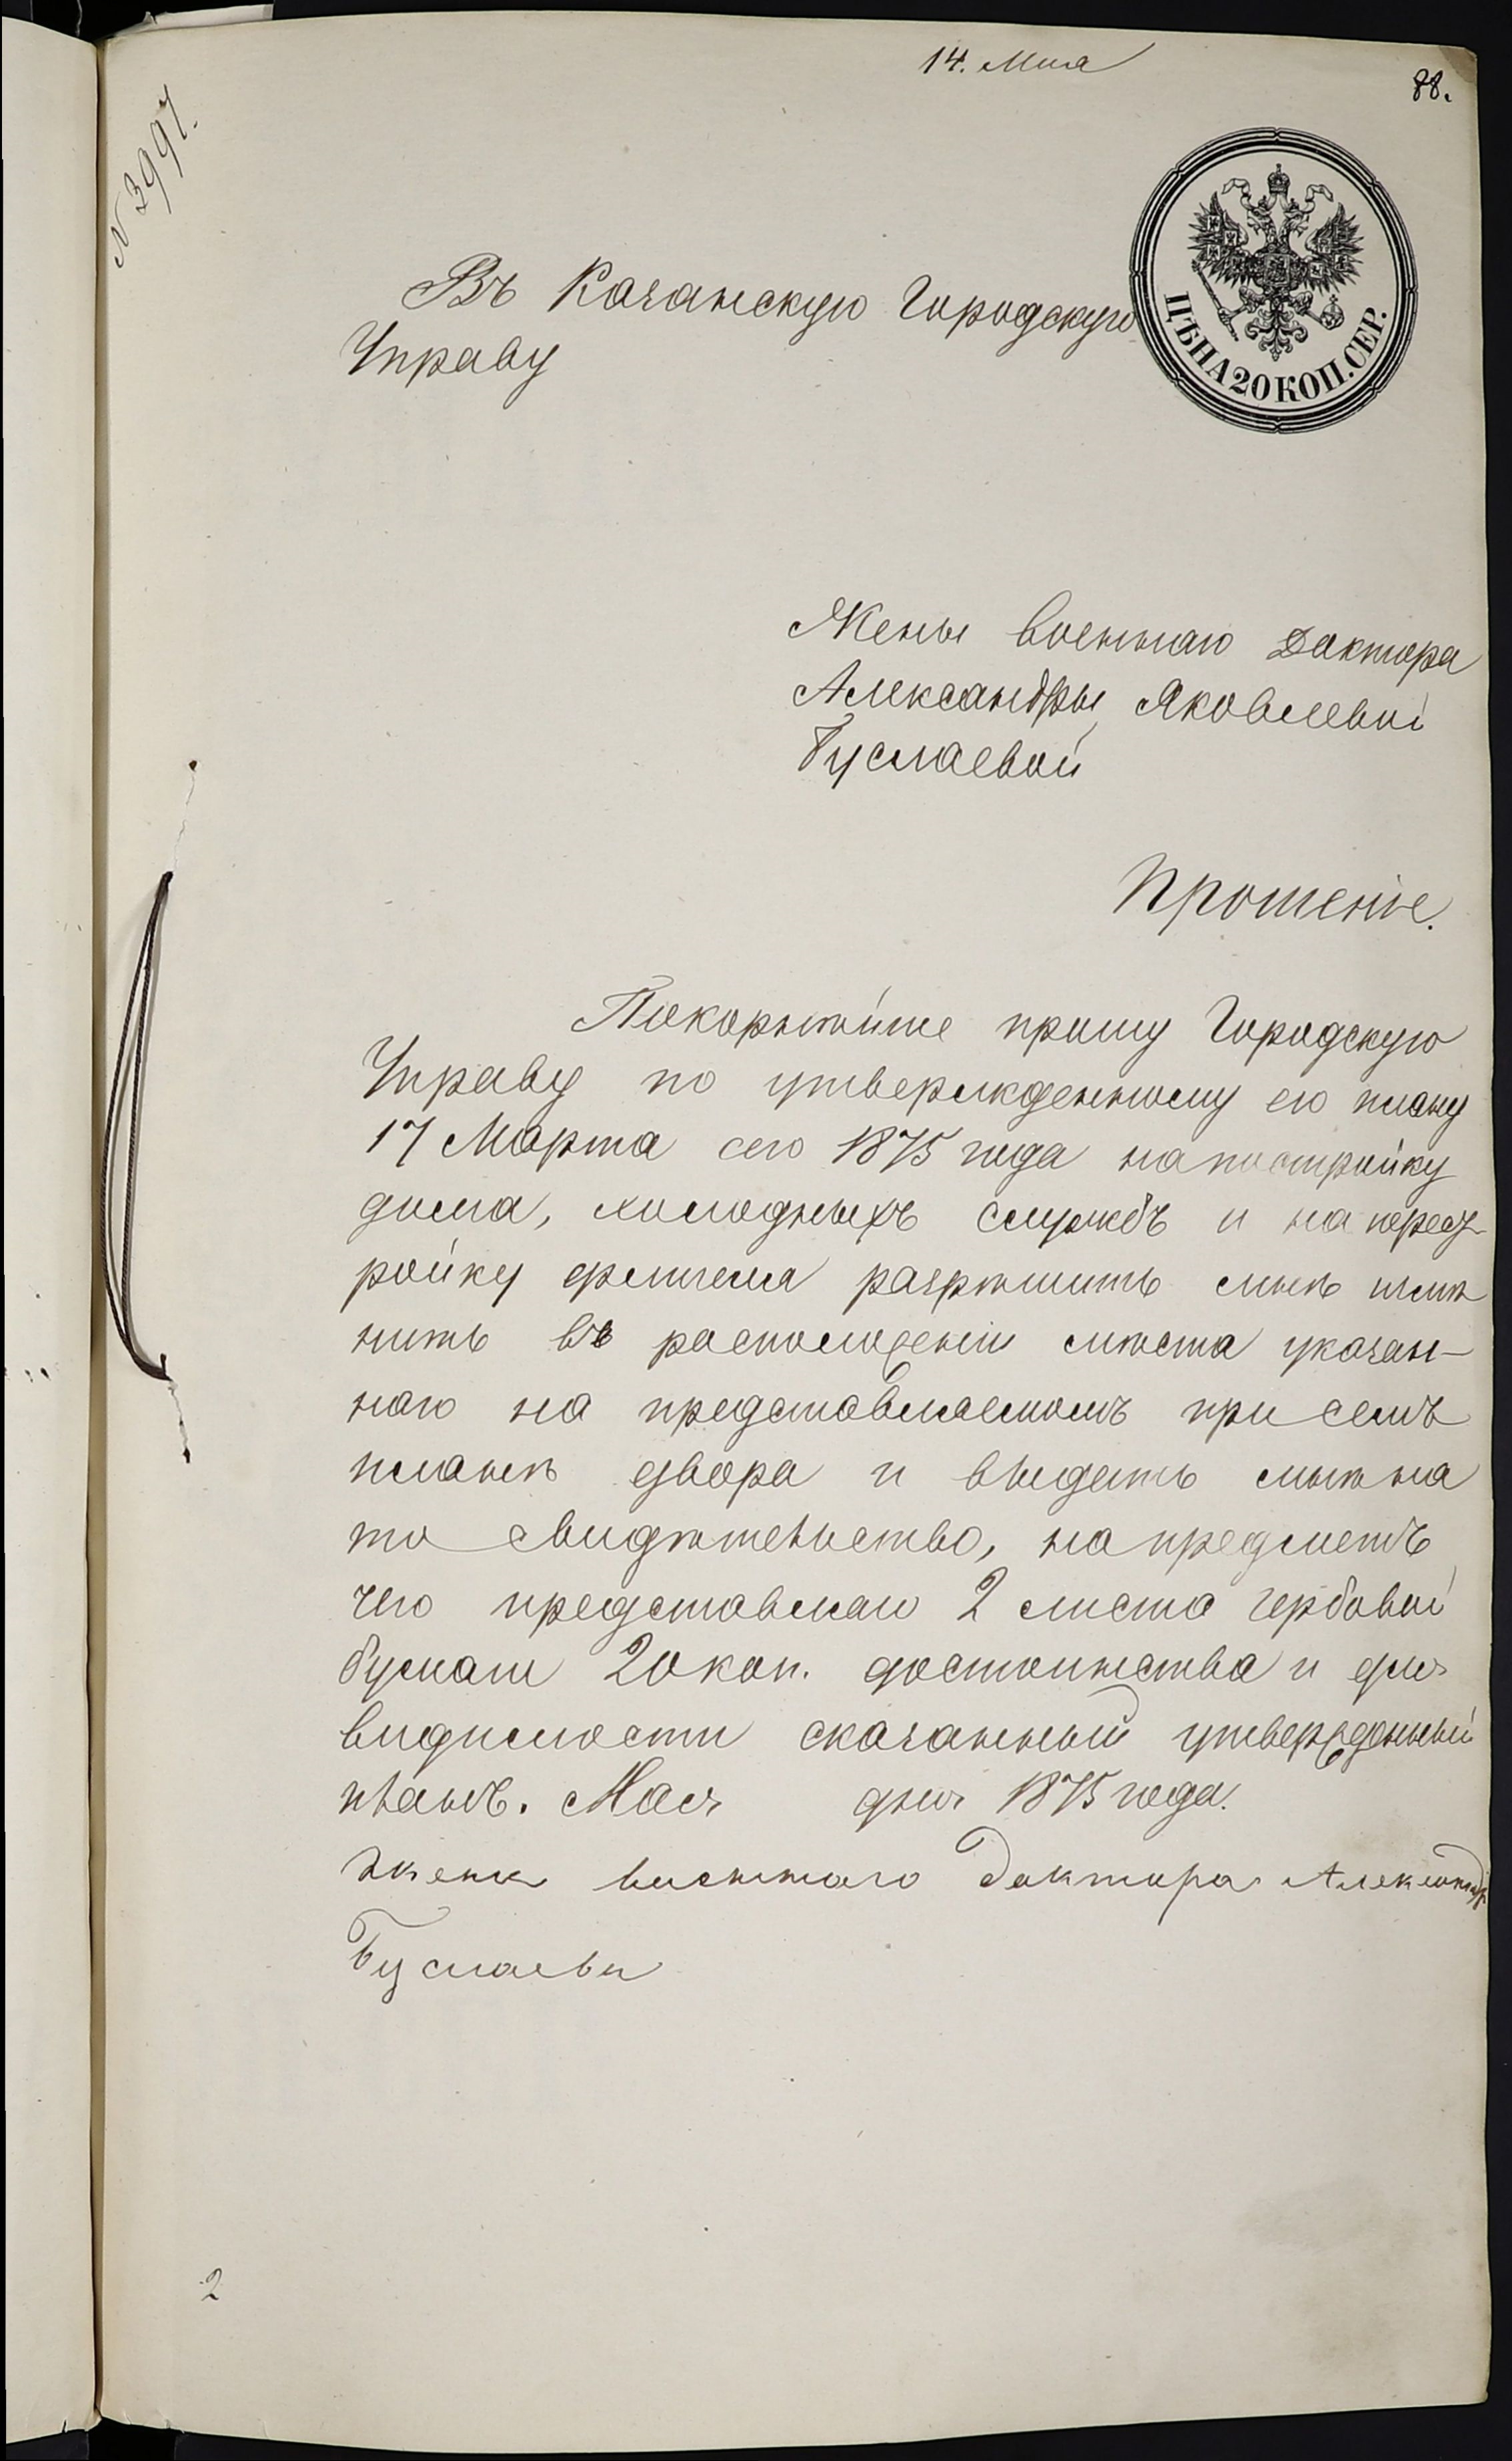 14. Мая
88.
N 3997.
ЦѢНА 20 КОП. СЕР.
Въ Казанскую Городскую
Управу
Жены военнаго Доктора
Александры Яковлевой
Буслаевой
Прошеніе.
Покорнѣйше прошу Городскую
Управу по утвержденному ею плану
17 Марта сего 1875 года на постройку
дома, холодныхъ службъ и на перест-
ройку флигеля разрѣшить мнѣ измѣ
нить въ расположеніи мѣста указан-
наго на представляемомъ при семъ
планѣ двора и выдать мнѣ на
то свидѣтельство, на предметъ
чего представляю 2 листа гербовой
бумаги 20 коп. достоинства и для
видимости сказанный утвержденный
планъ. Мая дня 1875 года.
Жена военнаго Доктора Александр
Буслаева
2